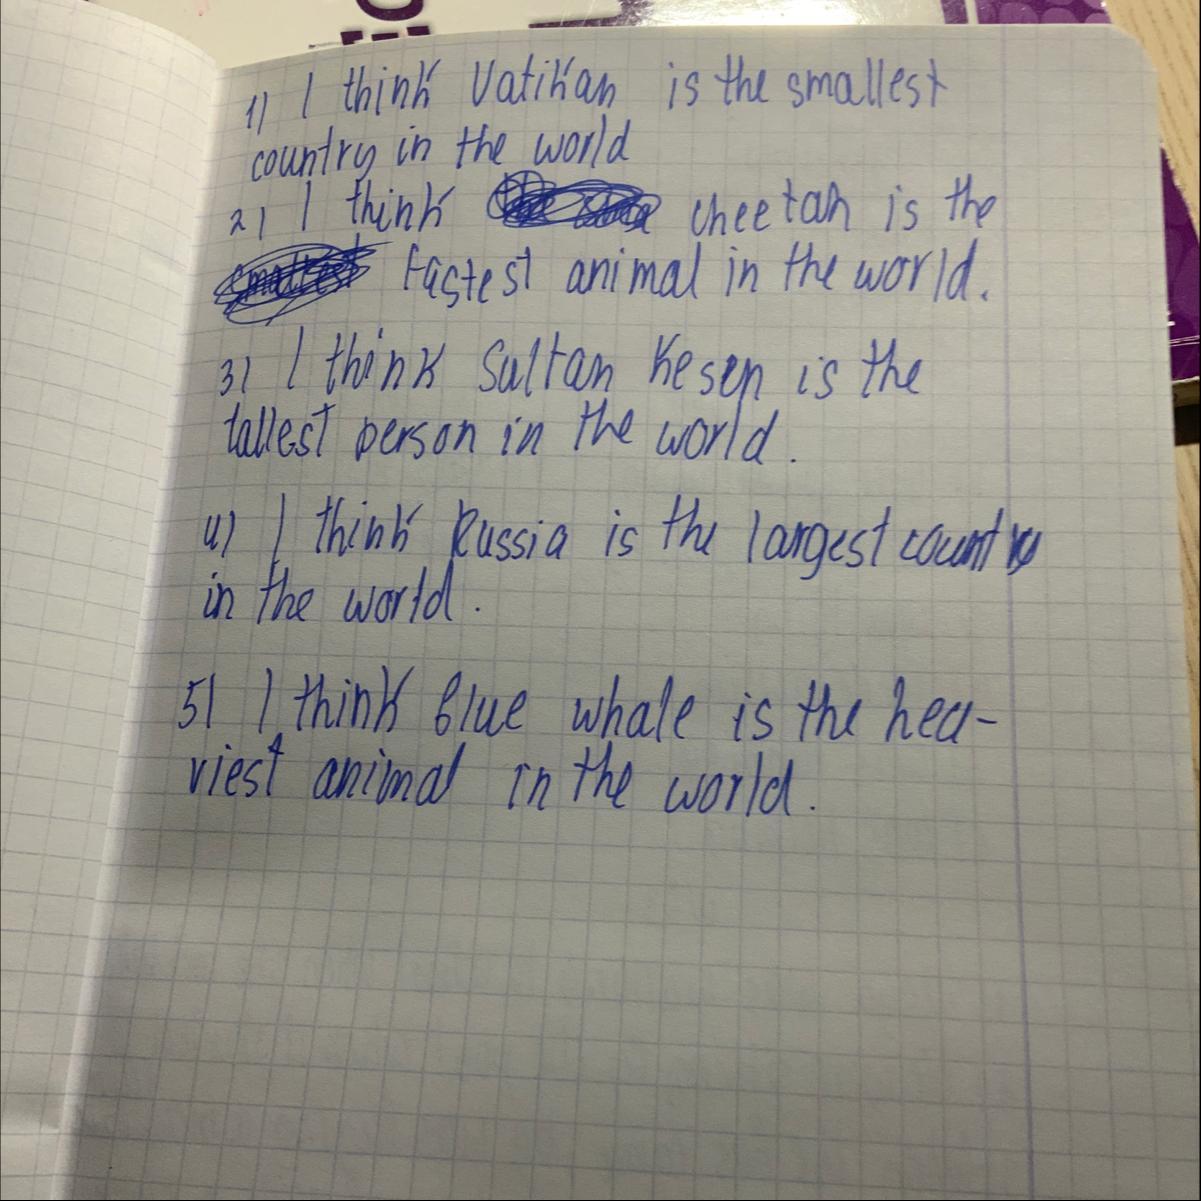 1) I think Vatikan is the smallest
country in the world
2) I think cheetah is the
fastest animal in the world.
3) I think Sultan Kesen is the
tallest person in the world.
4) I think Russia is the largest country
in the world.
5) I think blue whale is the hea-
viest animal in the world.